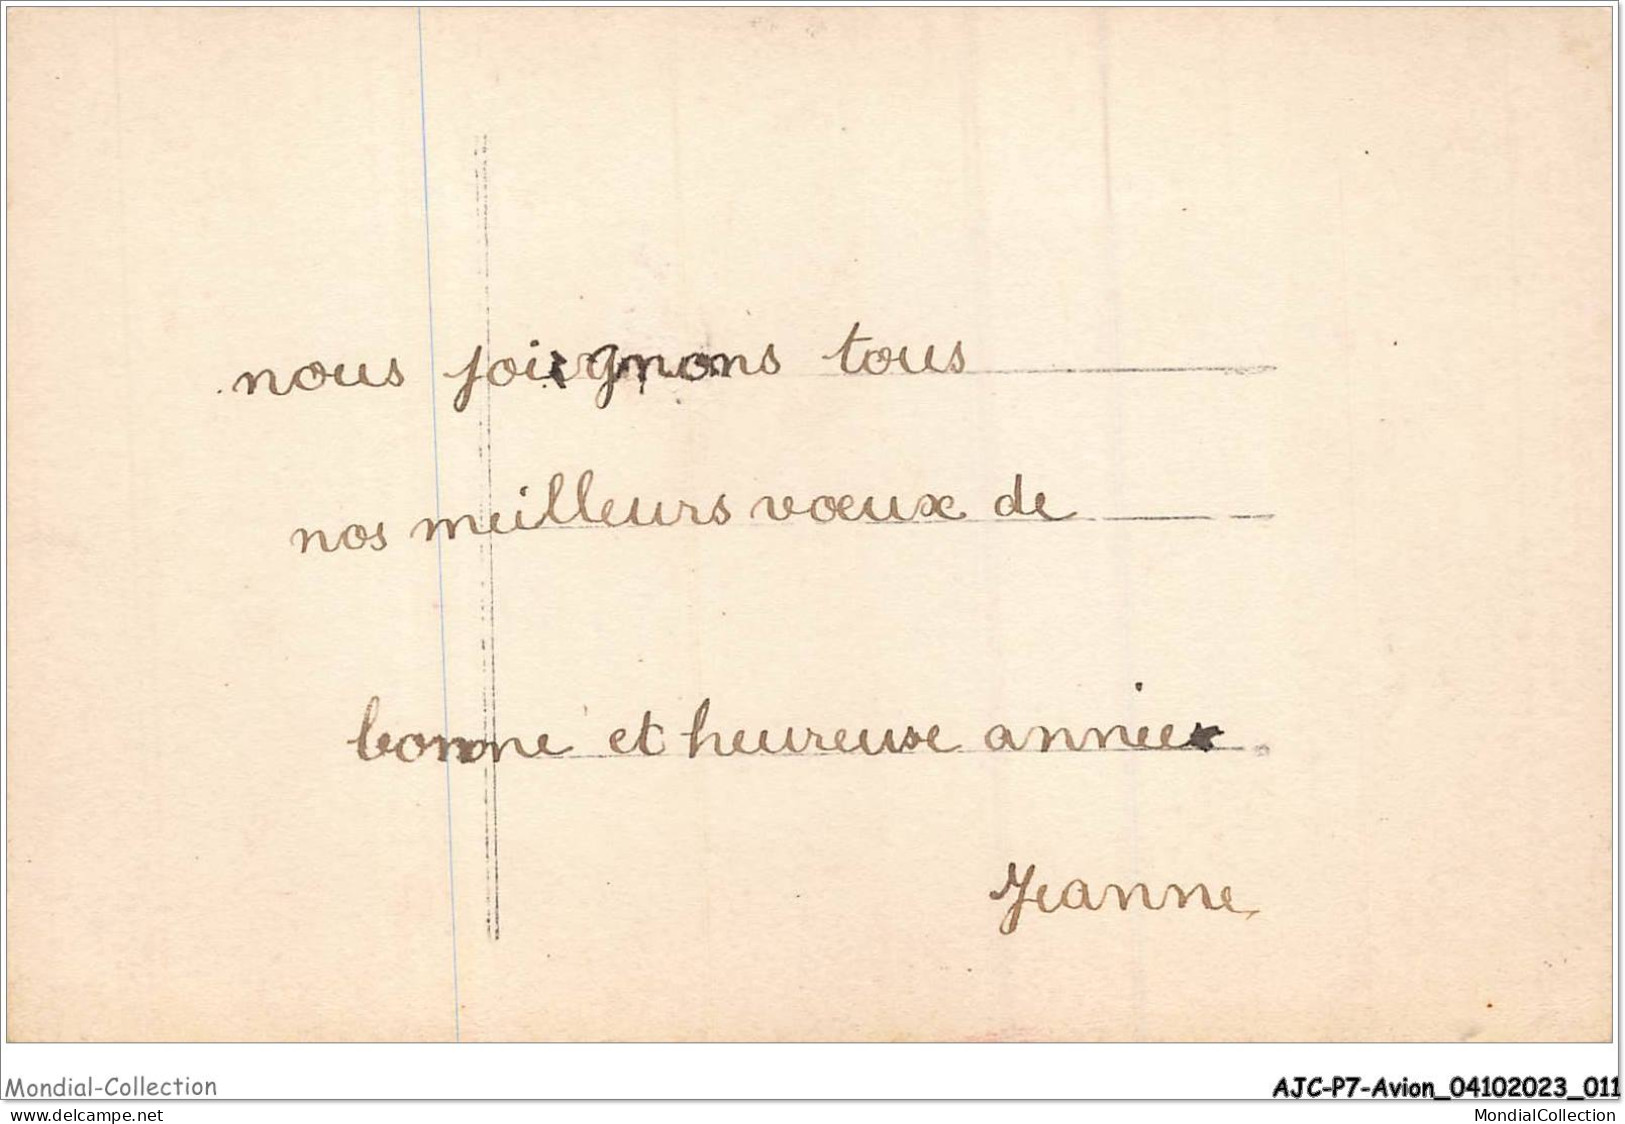 nous joignons tous
nos meilleurs vœux de
bonne et heureuse année
Jeanne
Mondial-Collection
AJC-P7-Avion_04102023_011
www.delcampe.net
MondialCollection